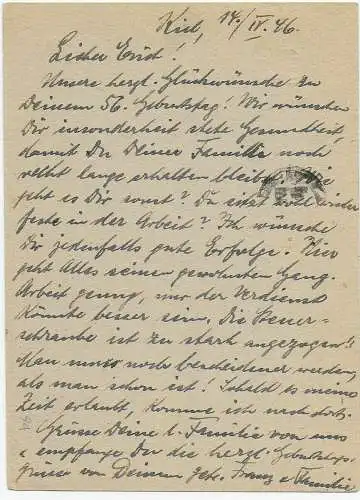 Kiel, 14./IV. 46.
Lieber Erich!
Unsere herzl. Glückwünsche zu
Deinem 56. Geburtstag! Wir wünschen
Dir insonderheit stete Gesundheit,
damit Du Deiner Familie noch
recht lange erhalten bleibst. Wie
geht es Dir sonst? Du sitzt wohl wieder
feste in der Arbeit? Ich wünsche
Dir jedenfalls gute Erfolge. Hier
geht Alles seinen gewohnten Gang.
Arbeit genug, nur der Verdienst
könnte besser sein. Die Steuer-
schraube ist zu stark angezogen!!
Man muss noch bescheidener werden,
als man schon ist! Sobald es meine
Zeit erlaubt, komme ich nach dort.
Grüsse Deine l. Familie von uns
u. empfange Du die herzl. Geburtstags-
grüsse von Deinem Franz u. Familie